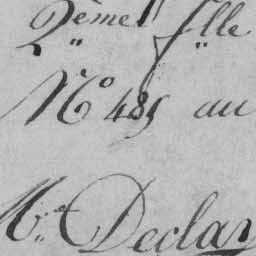 2ème flle
N° 485 au
Mr Declay